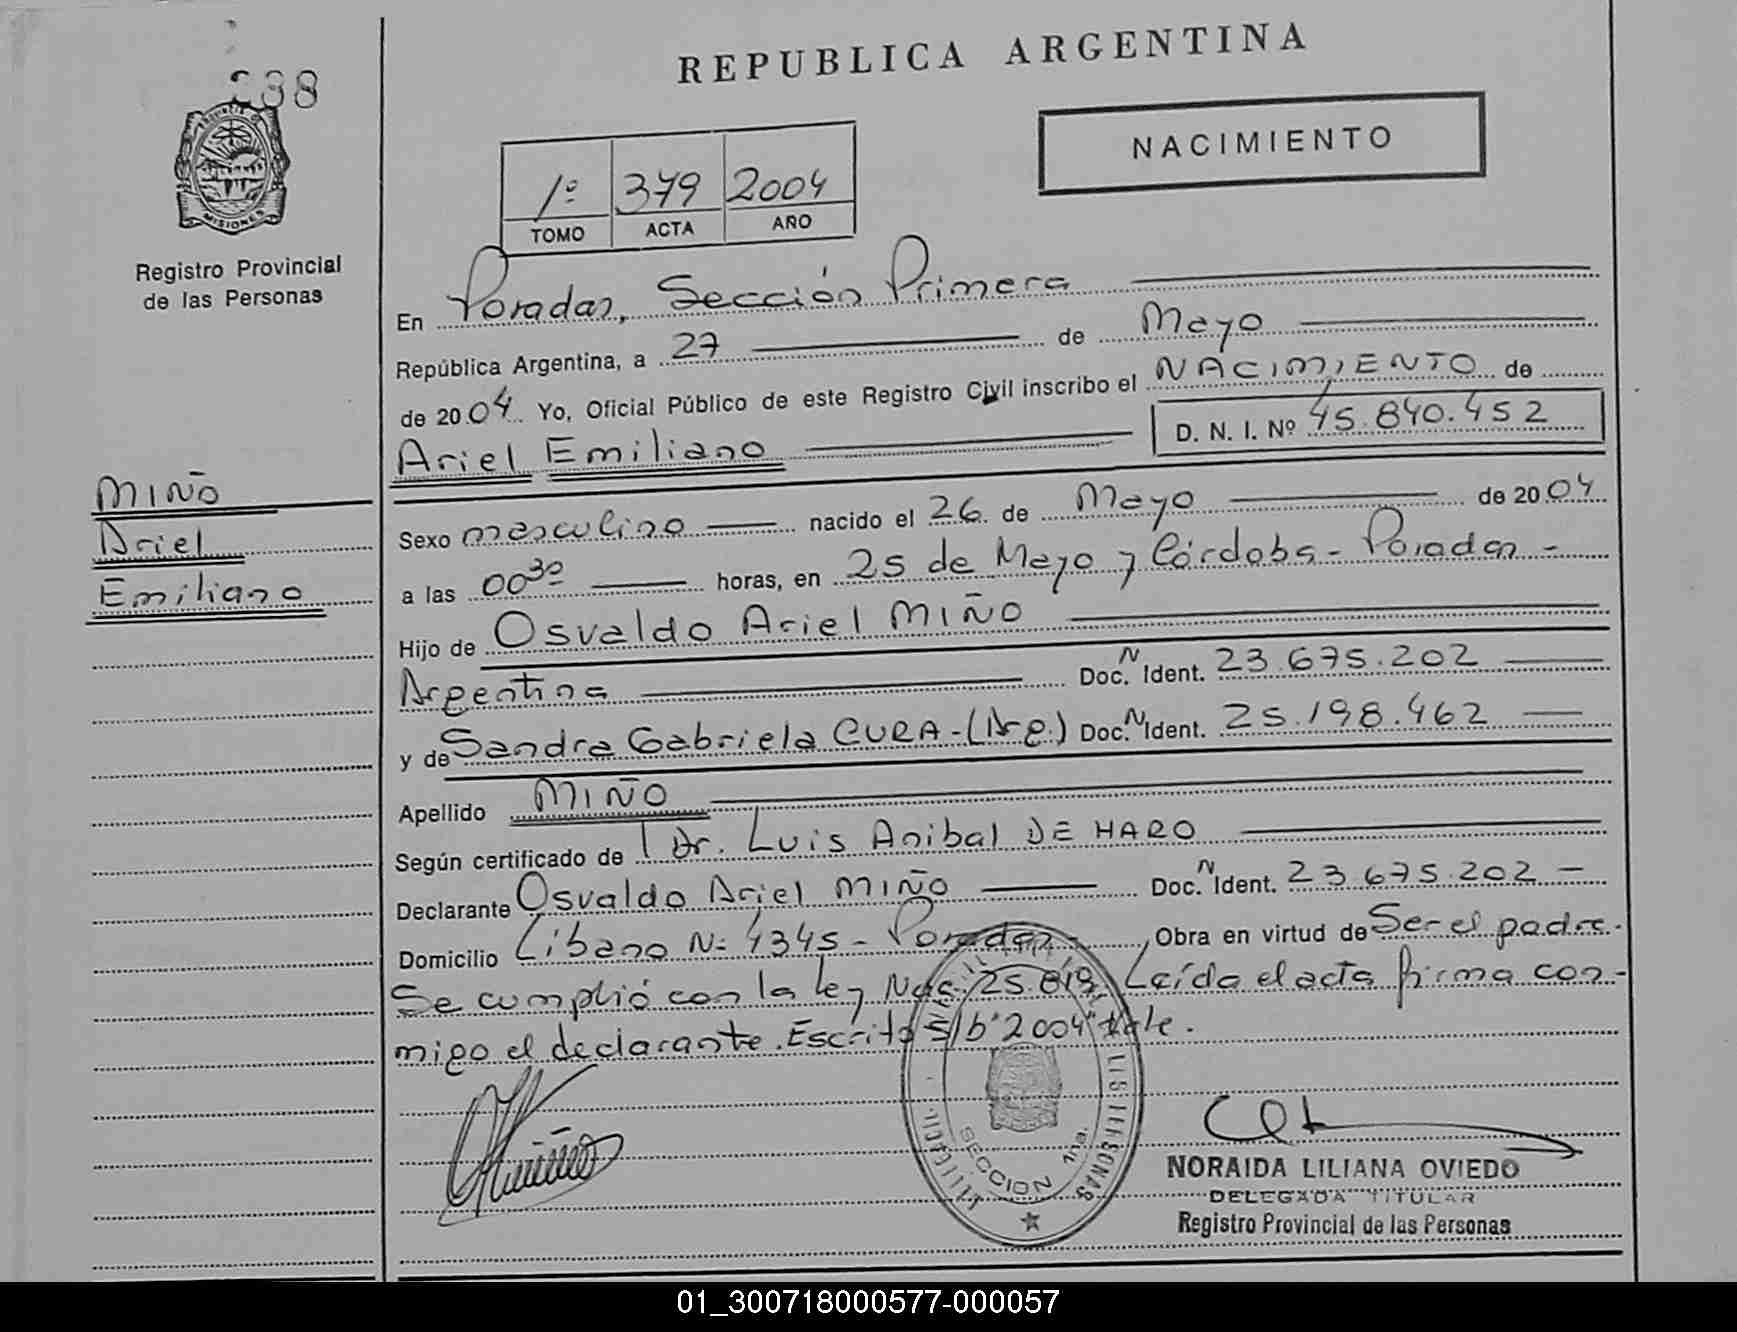 REPUBLICA ARGENTINA
338
MISIONES
Registro Provincial
de las Personas
NACIMIENTO
1º 379 2004
TOMO ACTA AÑO
En Posadas, Sección Primera
República Argentina, a 27 de Mayo
de 2004 Yo, Oficial Público de este Registro Civil inscribo el NACIMIENTO de
Ariel Emiliano D. N. I. Nº 45.840.452
MIÑO
Ariel
Emiliano
Sexo masculino nacido el 26 de Mayo de 2004
a las 00 30 horas, en 25 de Mayo y Córdoba - Posadas -
Hijo de Osvaldo Ariel MIÑO
Argentina Doc. N Ident. 23.675.202
y de Sandra Gabriela CURA - (Arg.) Doc. N Ident. 25.198.462
Apellido MIÑO
Según certificado de Dr. Luis Anibal DE HARO
Declarante Osvaldo Ariel MIÑO Doc. N Ident. 23.675.202 -
Domicilio Líbano Nº 4345 - Posadas - , Obra en virtud de Ser el padre.
Se cumplió con la ley Nac. 25.819 Leída el acta firma con-
migo el declarante. Escrito s/b "2004" Vale.
SECCION 1ra.
NORAIDA LILIANA OVIEDO
DELEGADA TITULAR
Registro Provincial de las Personas
01_300718000577-000057